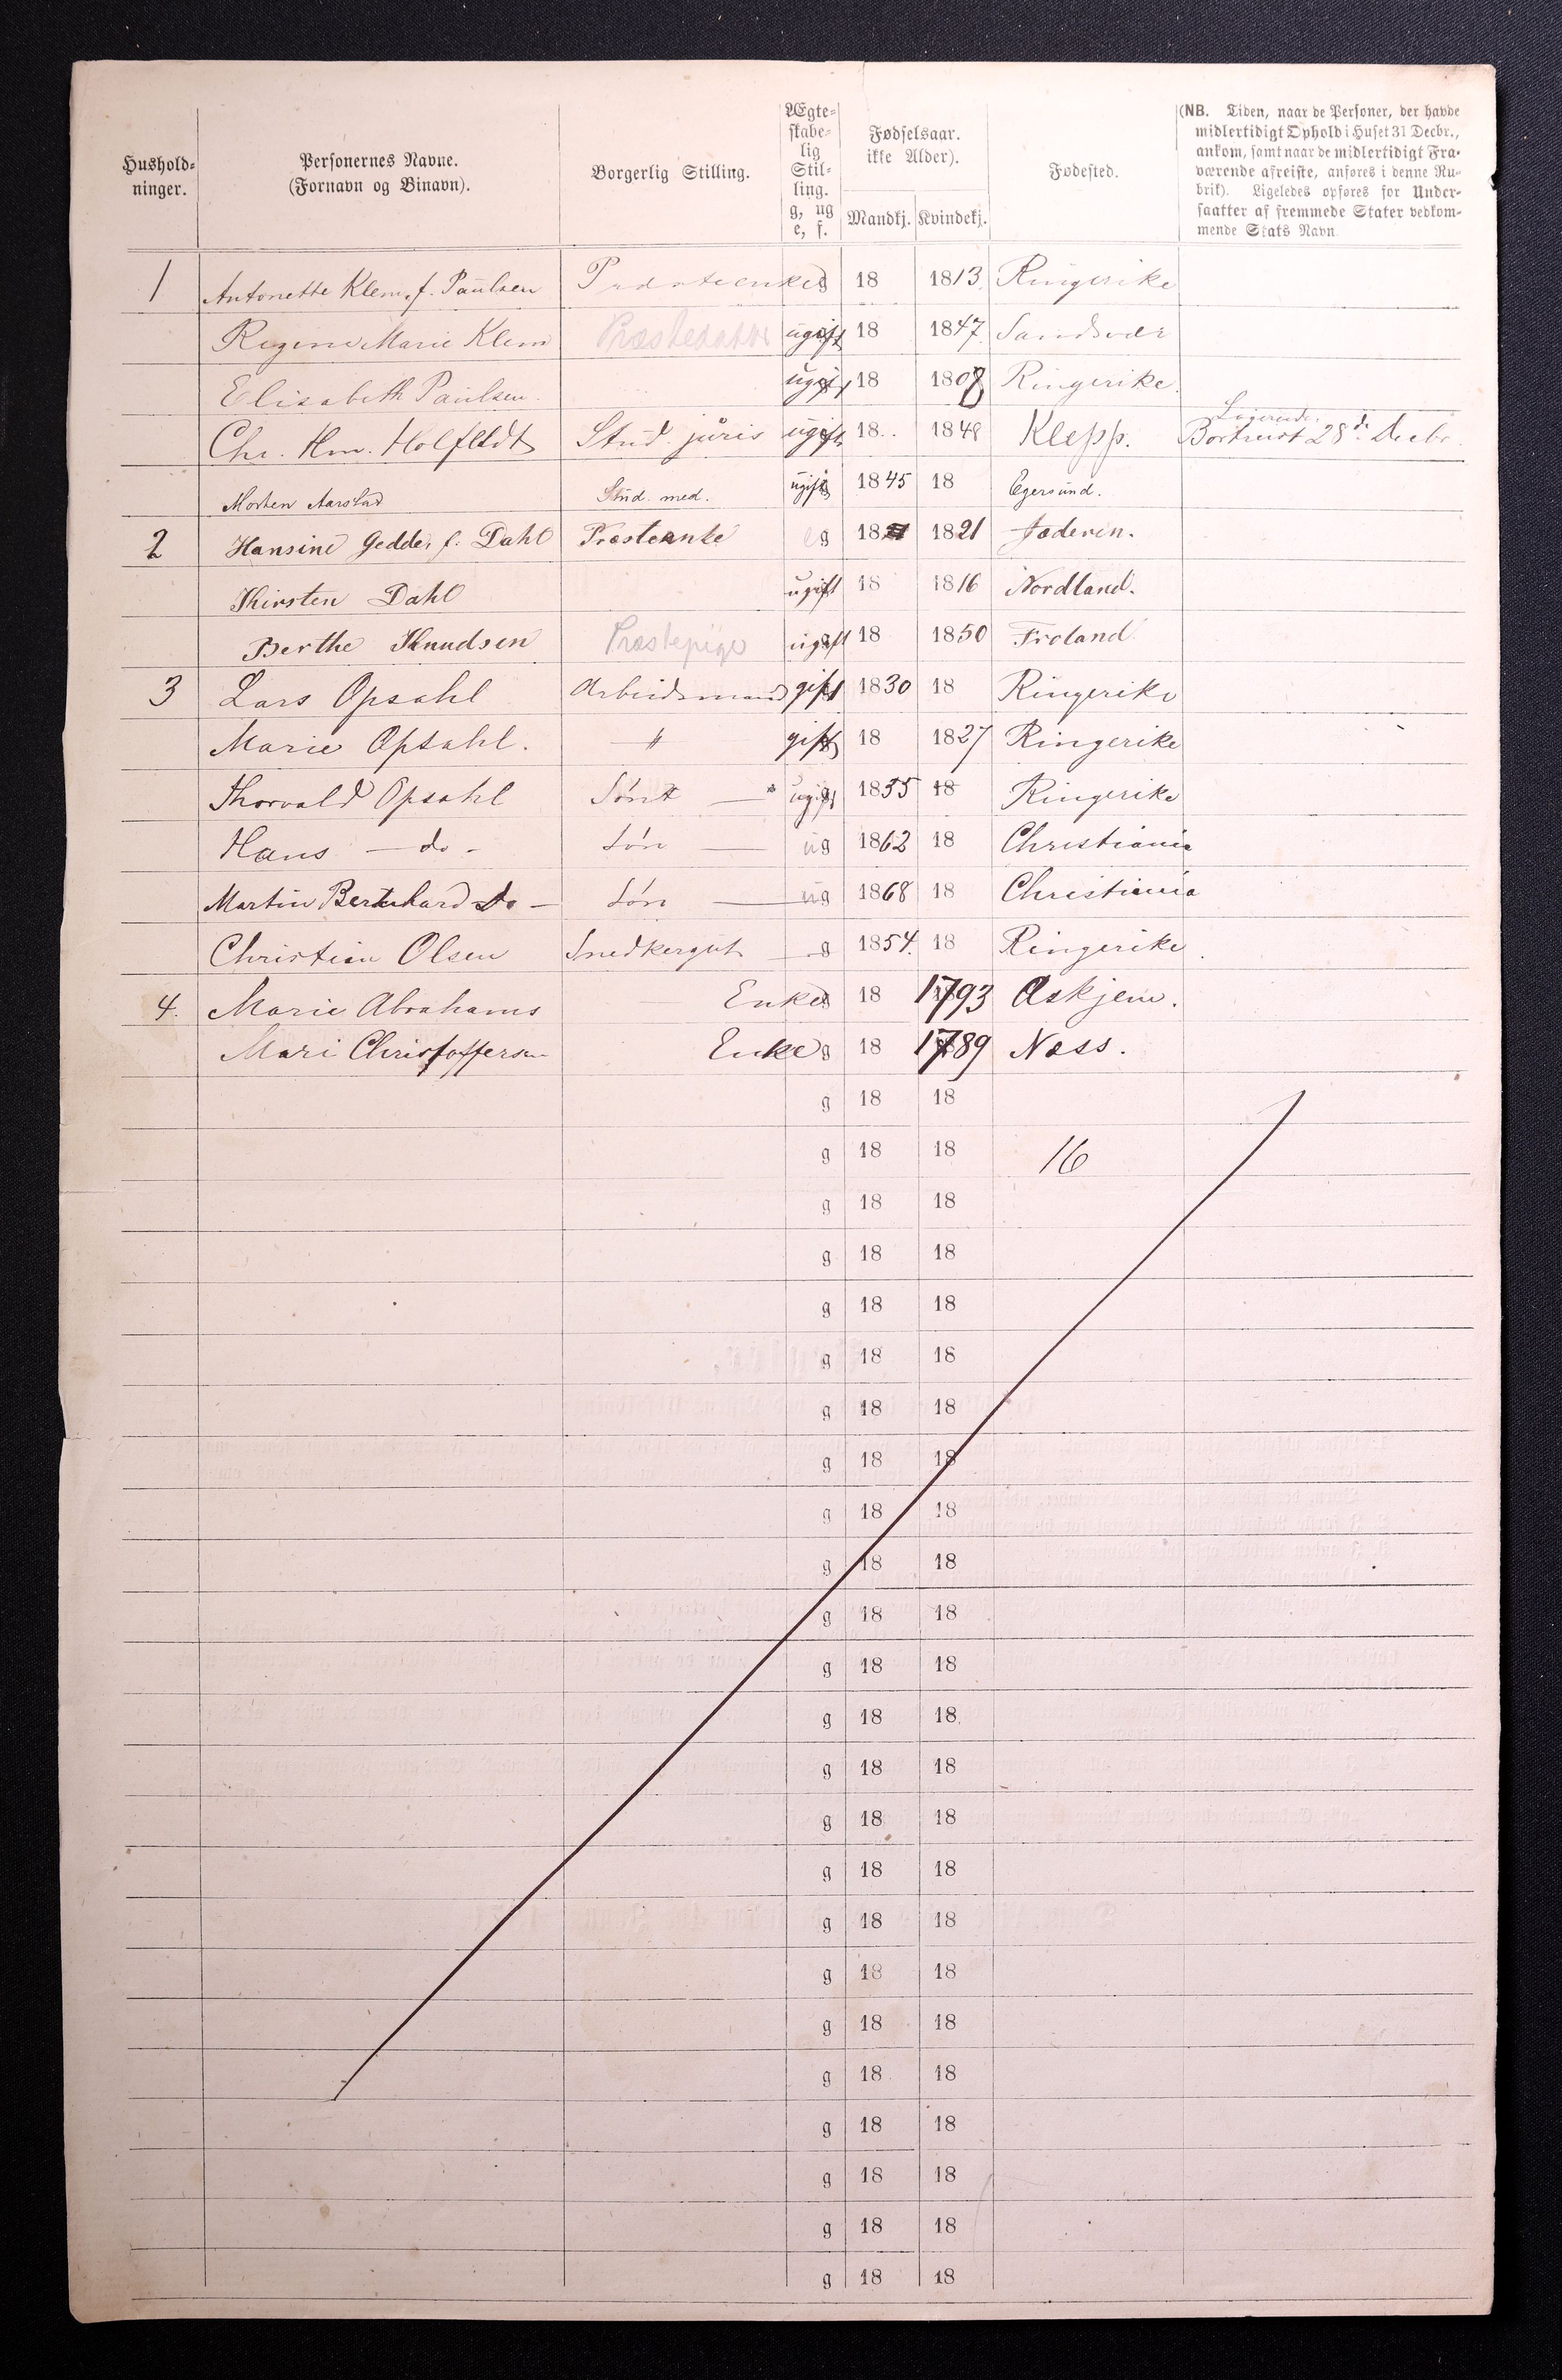 Hushold-
ninger.
Personernes Navne.
(Fornavn og Binavn).
Borgerlig Stilling.
Ægte-
skabe-
lig
Stil-
ling.
g, ug
e, f.
Fødselsaar.
ikke Alder).
Mandkj. Kvindekj.
Fødested.
(NB. Tiden, naar de Personer, der havde
midlertidigt Ophold i Huset 31 Decbr.,
ankom, samt naar de midlertidigt Fra-
værende afreiste, anføres i denne Ru-
brik). Ligeledes opføres for Under-
saatter af fremmede Stater vedkom-
mende Stats Navn
1 Antonette Klem, f. Paulsen g 18 1813 Ringerike
Regine Marie Klem ugift 18 1847 Sandsvær
Elisabeth Paulsen. ugift 18 1808 Ringerike.
Logerende
Chr. Hm. Holfeldt Stud. juris ugift 18 1848 Klepp. Bortreist 28de Decbr.
Morten Aarstad Stud. med. ugift 1845 18 Egersund.
2 Hansine Gedde, f. Dahl Præsteenke eg 18 1821 Jæderen.
Kirsten Dahl ugift 18 1816 Nordland.
Berthe Knudsen ugift 18 1850 Froland
3 Lars Opsahl Arbeidsmand gift 1830 18 Ringerike
Marie Opsahl. — " gift 18 1827 Ringerike
Thorvald Opsahl ugift 1855 18 Ringerike
Hans — do - Søn — ug 1862 18 Christiania
Martin Bernhard do - Søn — ug 1868 18 Christiania
Christian Olsen Snedkergut g 1854. 18 Ringerike
4. Marie Abrahams Enke g 18 1793 Askjem.
Mari Christoffersen Enke g 18 1789 Næss.
g 18 18
g 18 18 16
g 18 18
g 18 18
g 18 18
g 18 18
g 18 18
g 18 18
g 18 18
g 18 18
g 18 18
g 18 18
g 18 18
g 18 18
g 18 18
g 18 18
g 18 18
g 18 18
g 18 18
g 18 18
g 18 18
g 18 18
g 18 18
g 18 18